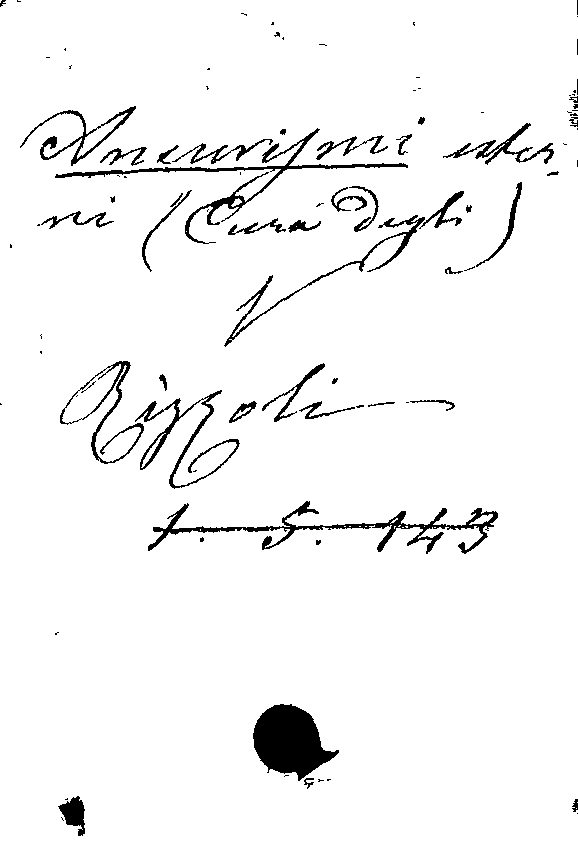 Aneurismi ester-
ni (Cura degli)
V
Rizzoli
1. 5. 143